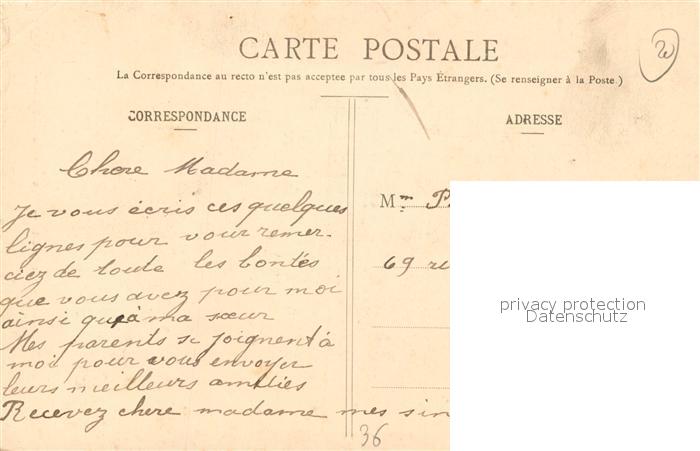 CARTE POSTALE
La Correspondance au recto n'est pas acceptee par tous les Pays Étrangers. (Se renseigner à la Poste.)
CORRESPONDANCE
Chere Madame
Je vous écris ces quelques
lignes pour vour remer-
ciez de toute les bontés
que vous avez pour moi
ainsi qu'à ma sœur
Mes parents se joignent à
moi pour vous envoyer
leurs meilleurs amitiés
Recevez chere madame mes sin
36
ADRESSE
Mme P
69 ru
privacy protection
Datenschutz